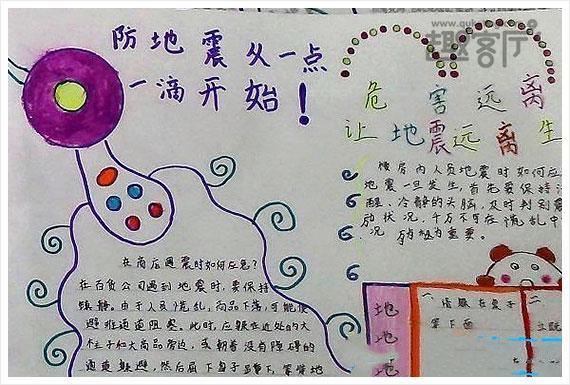 防地震从一点
一滴开始！
趣客厅
危害远离
让地震远离生
在商店遇震时如何应急？
在百货公司遇到地震时，要保持
镇静。由于人员慌乱，商品下落，可能使
避难通道阻塞。此时，应躲在近处的大
柱子和大商品旁边，或朝着没有障碍的
通道躲避，然后屈下身子蹲下，等待地
楼房内人员地震时如何应
地震一旦发生，首先要保持
醒、冷静的头脑，及时判别震
动状况，千万不可在慌乱中
为重要。
地
地
地
一
桌子
下面
二